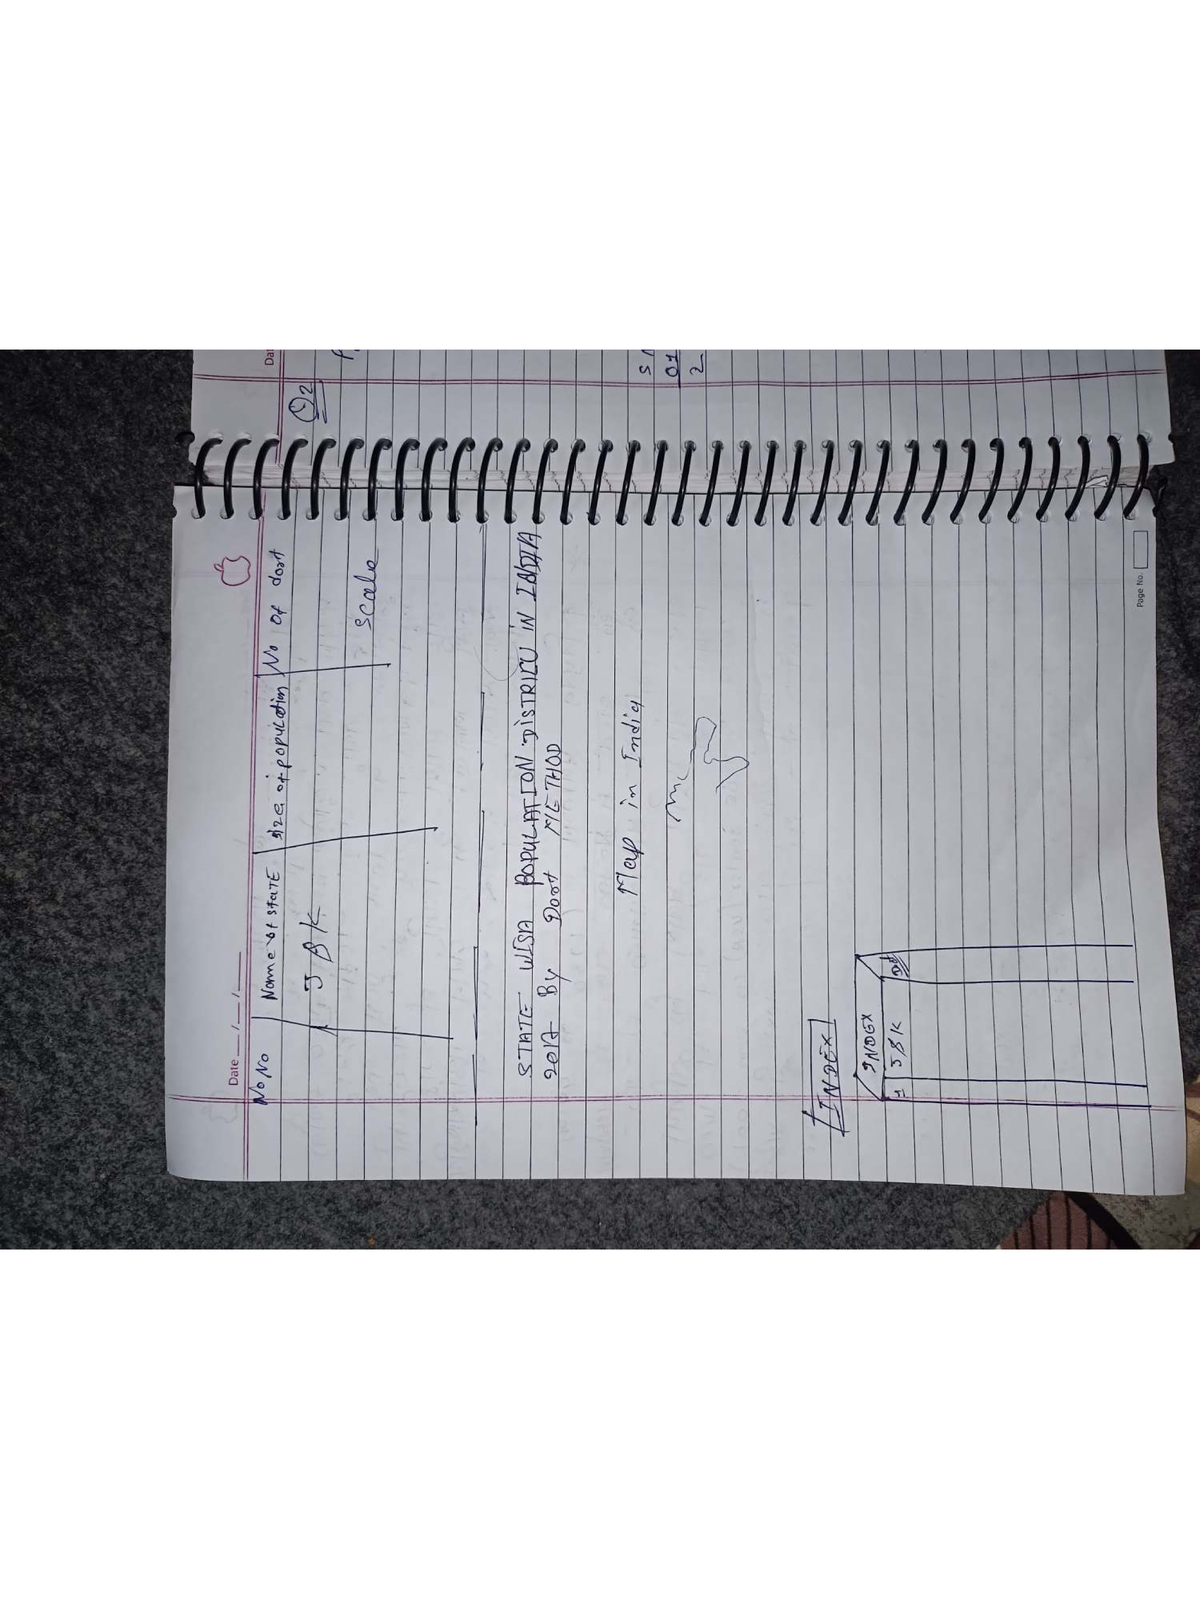 Date __/__/__
No No | Name of state | size of population | No of dort
J & K
scale
STATE WISA POPULATION DISTRICU IN INDIA
2017 By Dort METHOD
Map in India
INDEX
INDEX
1 | J & K | Dot
Page No.
Dat
Q2
S
01
2